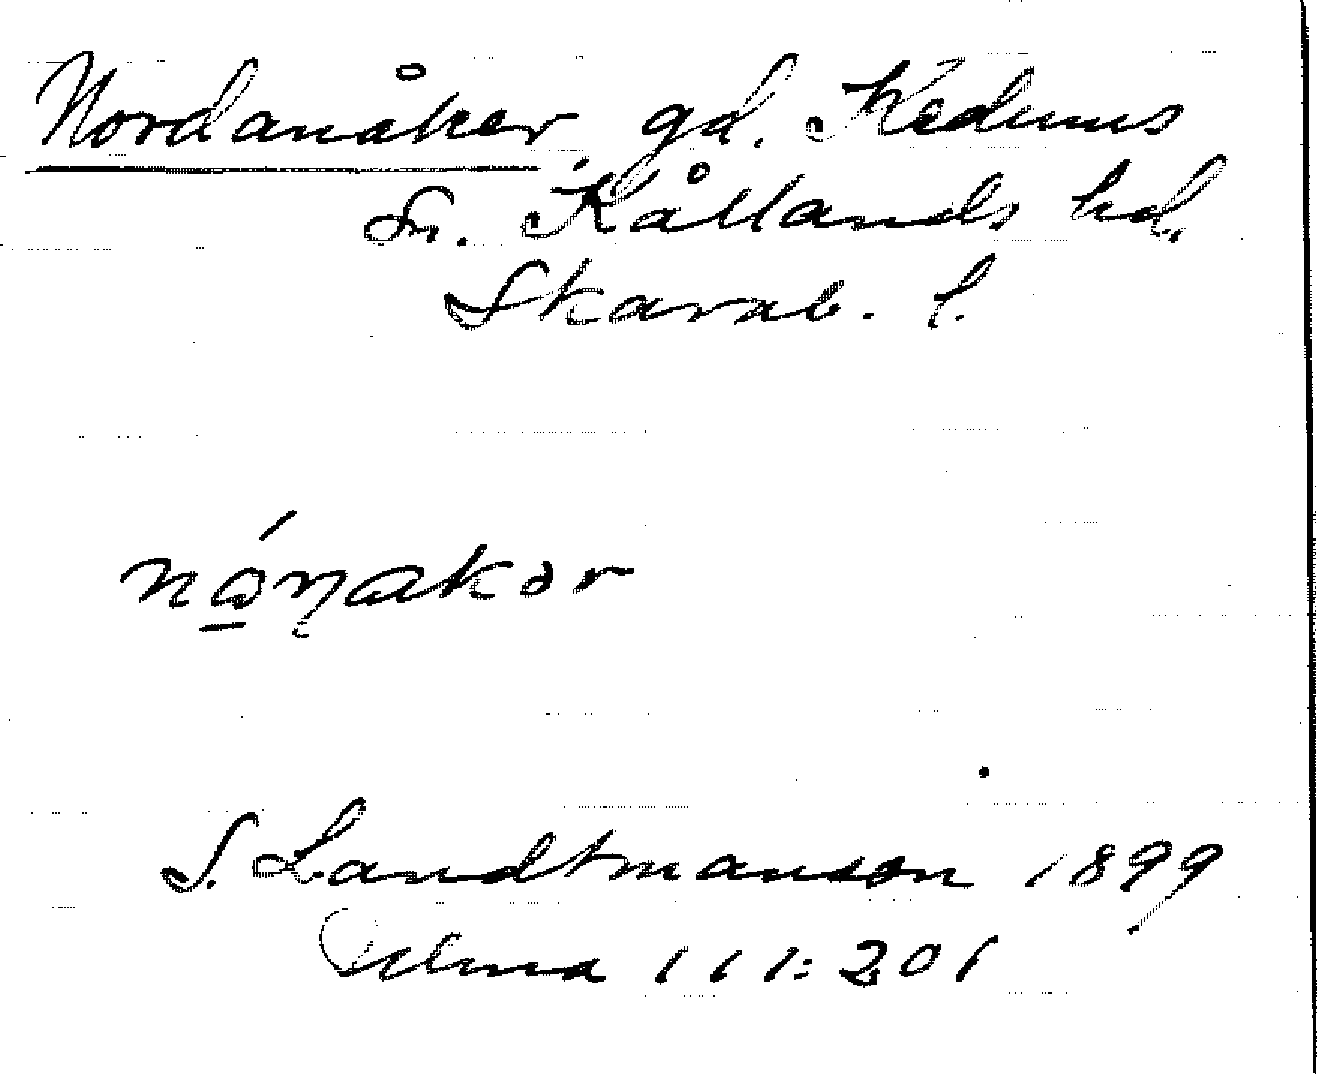 Nordanåker, gd. Kedums
Sn. Kållands hd.,
Skarab. l.
nǻɳakər
S. Landtmanson 1899
Ulma 111:201